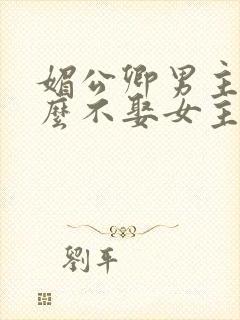 媚公卿男主
麼不娶女主
劉平